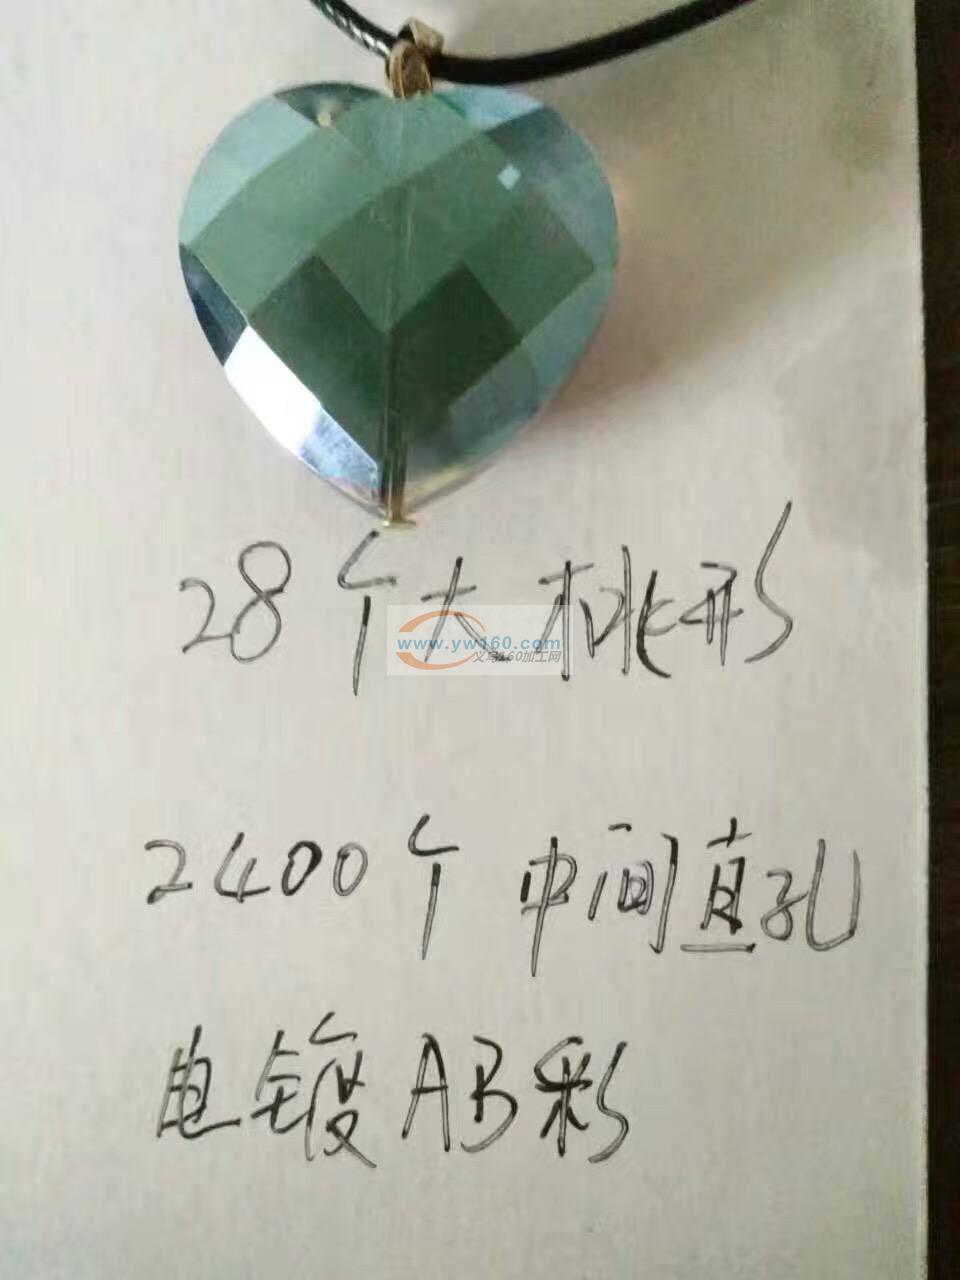 28个大桃形
www.yw160.com
义乌160加工网
2400个 中间直孔
电镀AB彩